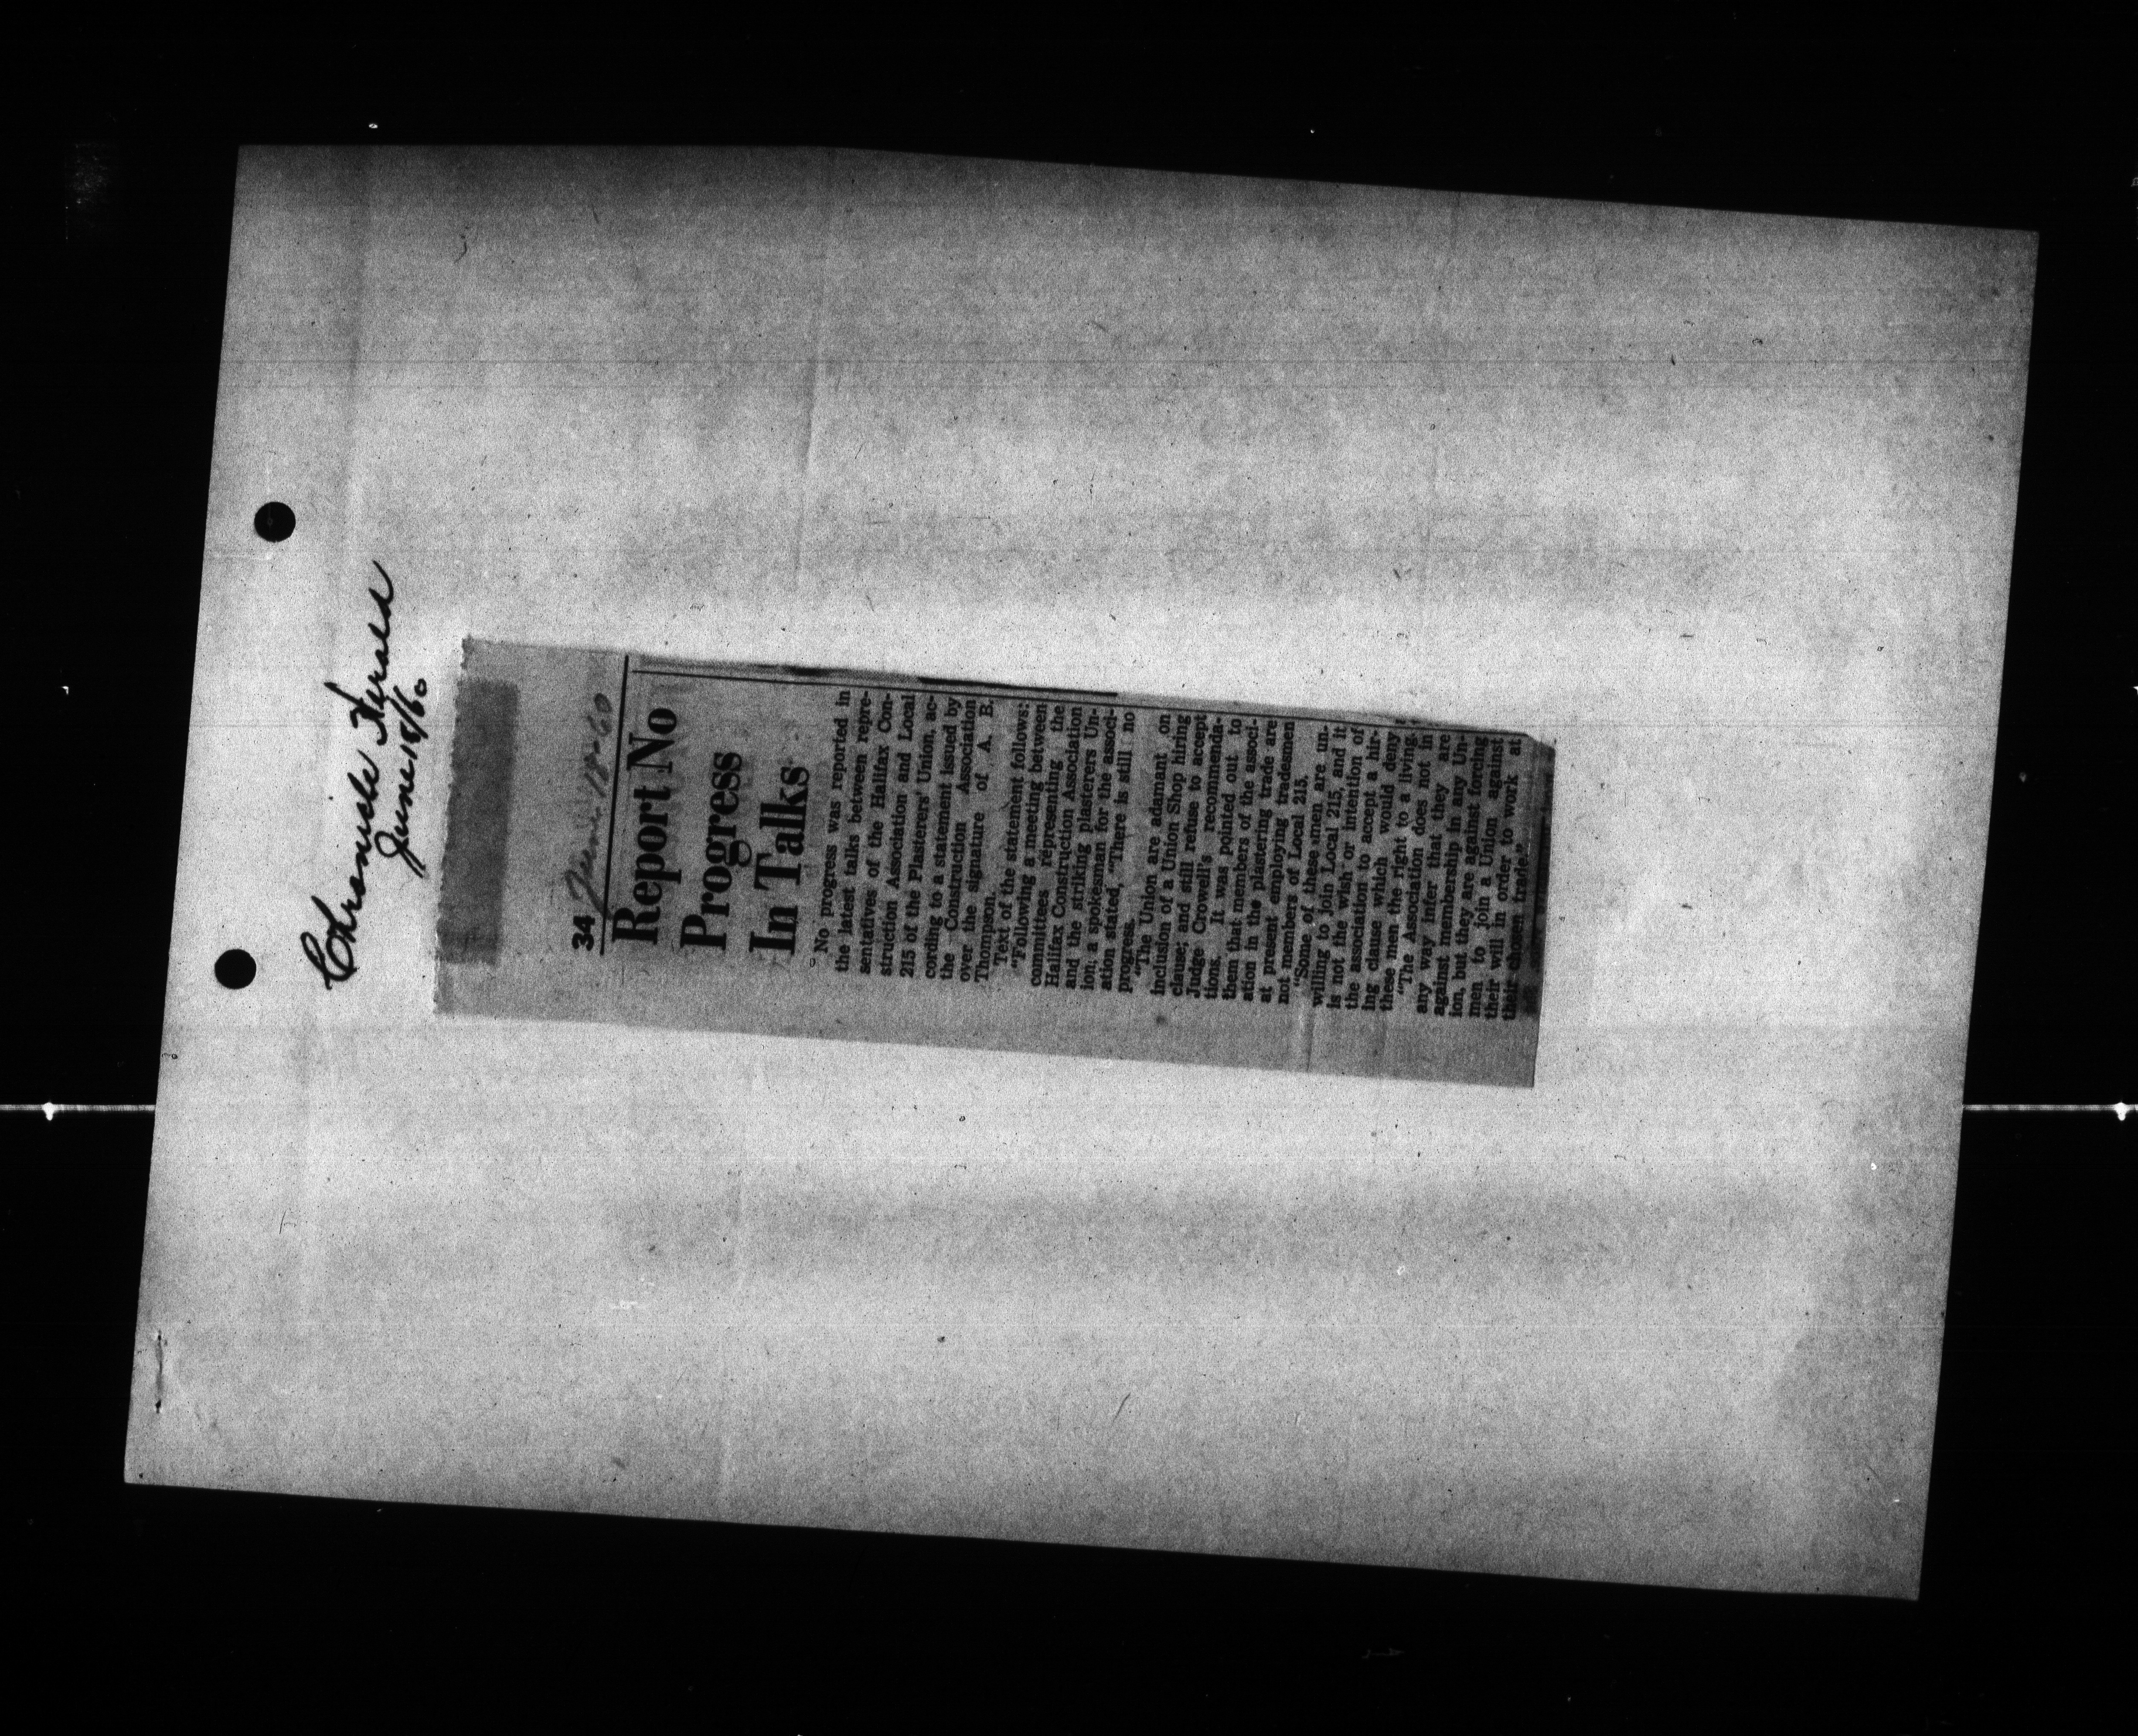 Chronicle Herald
June 18/60
34 June 18-60
Report No
Progress
In Talks
No progress was reported in
the latest talks between repre-
sentatives of the Halifax Con-
struction Association and Local
215 of the Plasterers' Union, ac-
cording to a statement issued by
the Construction Association
over the signature of A. B.
Thompson.
Text of the statement follows:
"Following a meeting between
committees representing the
Halifax Construction Association
and the striking plasterers Un-
ion, a spokesman for the associ-
ation stated, "There is still no
progress.
"The Union are adamant on
inclusion of a Union Shop hiring
clause; and still refuse to accept
Judge Crowell's recommenda-
tions. It was pointed out to
them that members of the associ-
ation in the plastering trade are
at present employing tradesmen
not members of Local 215.
"Some of these men are un-
willing to join Local 215, and it
is not the wish or intention of
the association to accept a hir-
ing clause which would deny
these men the right to a living.
"The Association does not in
any way infer that they are
against membership in any Un-
ion, but they are against forcing
men to join a Union against
their will in order to work at
their chosen trade."